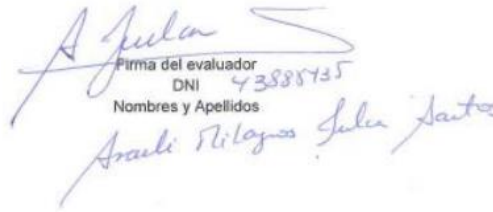 A Julca S
Firma del evaluador
DNI 43885435
Nombres y Apellidos
Araeli Milagros Julca Santos